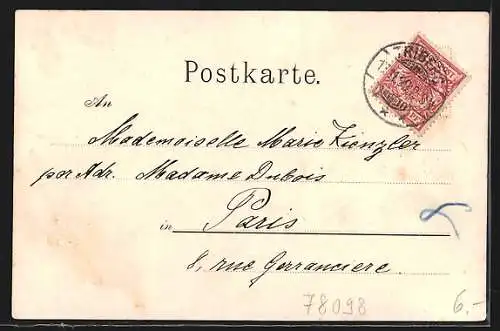 Postkarte.
An
Mademoiselle Marie Kienzler
per Adr. Madame Dubois
in Paris
8, rue Gerranciere
78098
6.-